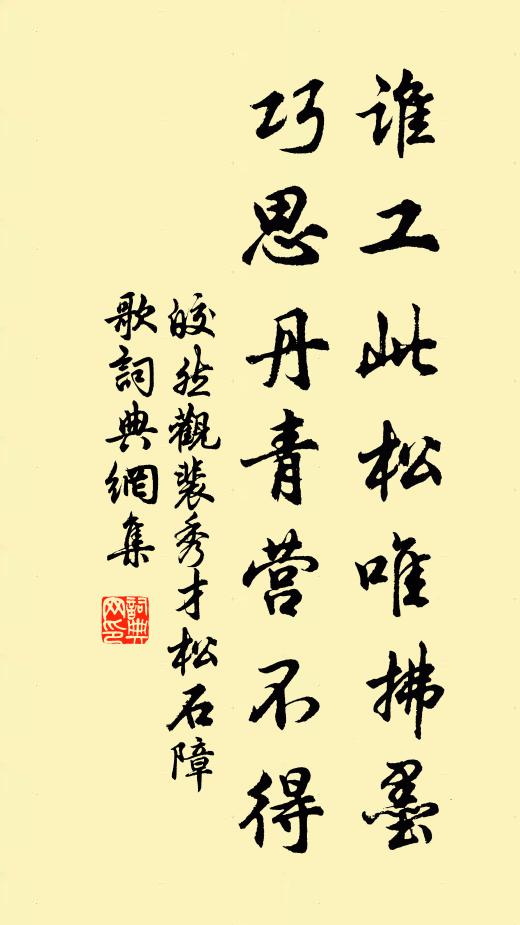 誰工此松唯拂墨
巧思丹青營不得
皎然觀裴秀才松石障
歌詞典網集
詞典
网印